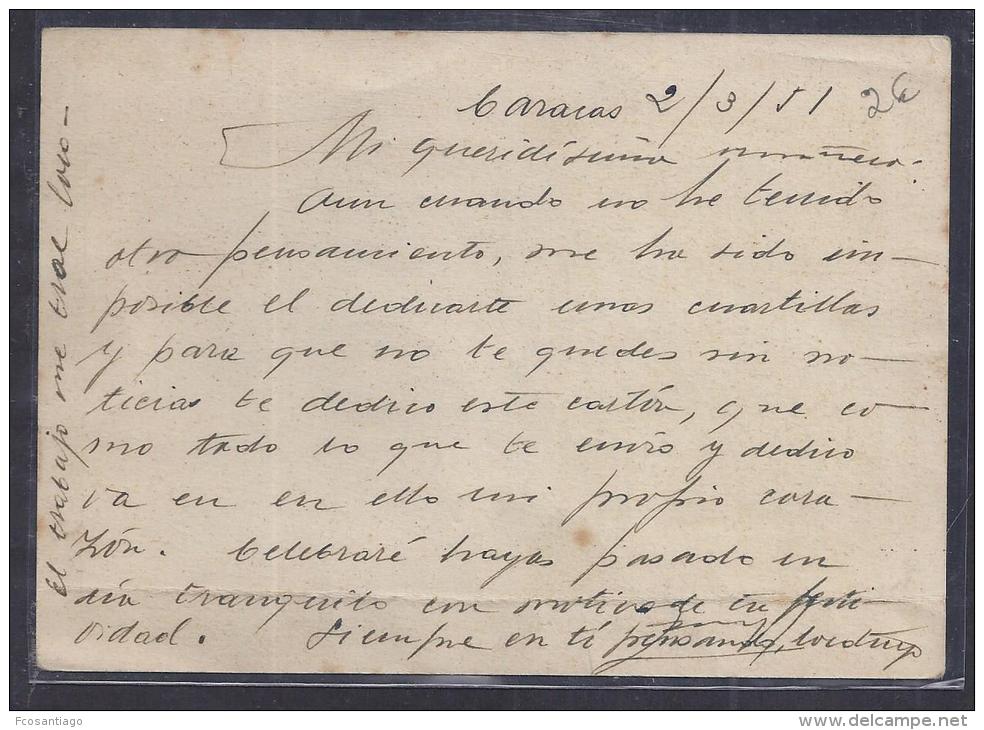 Caracas 2/3/51 26
Mi queridísima muñeca:
Aun cuando no he tenido
otro pensamiento, me ha sido im-
posible el dedicarte unas cuartillas
y para que no te quedes sin no-
ticias te dedico este cartón, que co-
mo todo lo que te envío y dedico
va en en ello mi propio cora-
zón. Celebraré hayas pasado un
día tranquilo con motivo de tu festi-
vidad. Siempre en tí pensando, tuyo
El trabajo me trae loco-
Fcosantiago
www.delcampe.net